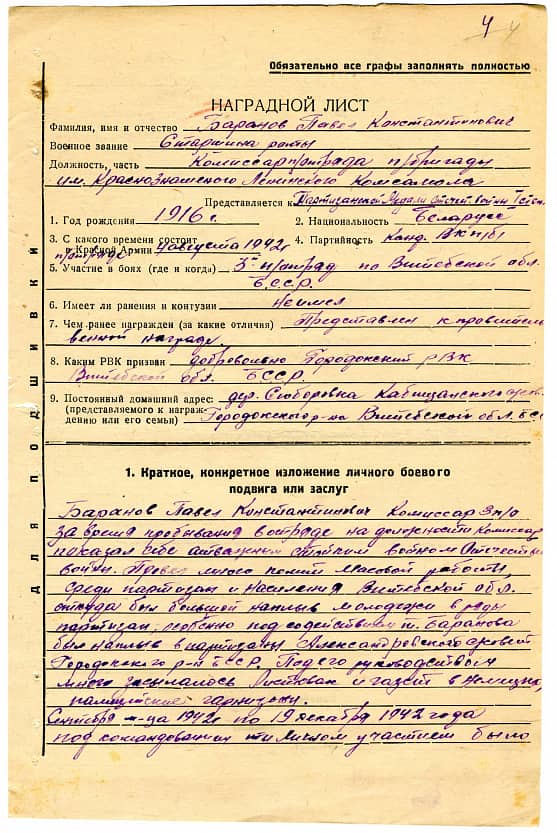 4
Обязательно все графы заполнять полностью
НАГРАДНОЙ ЛИСТ
Фамилия, имя и отчество Баранов Павел Константинович
Военное звание Старшина роты
Должность, часть Комиссар п/отряда п/бригады
им. Краснознамского Ленинского Комсомола
Представляется к Партизанской Медали Отечет. войны
1. Год рождения 1916 г. 2. Национальность Беларусс
3. С какого времени состоит 4. Партийность Канд. ВКП/б/
в Красной Армии августа 1942г
п/отряде
5. Участие в боях (где и когда) 3й п/отряд по Витебской обл.
БССР.
6. Имеет ли ранения и контузии Не имел
7. Чем ранее награжден (за какие отличия) Представлен к правитель
венной награде.
8. Каким РВК призван добровольно Городокский РВК
Витебской обл. БССР.
9. Постоянный домашний адрес: дер.
(представляемого к награж-
дению или его семьи) Городокского р-на Витебской обл.
ДЛЯ ПОДШИВКИ
1. Краткое, конкретное изложение личного боевого
подвига или заслуг
Баранов Павел Константинович Комиссар 3 п/о
за время пребывания в отряде на должности Комиссар
показал себе отважным стойким воином Отечеств
войны. Провел много полит Массовой работы,
среди партизан и населения Витебской обл.
откуда был большой наплыв молодежи в ряды
партизан, особенно под содействием т. Баранова
был наплыв в партизаны Александровского
Городокского р-н БССР. Под его руководством
много засылалось Листовак и газет в Немецко,
гарнизоны.
Сентября м-ца 1942г по 19 декабря 1942 года
под командованием и Личном участием было